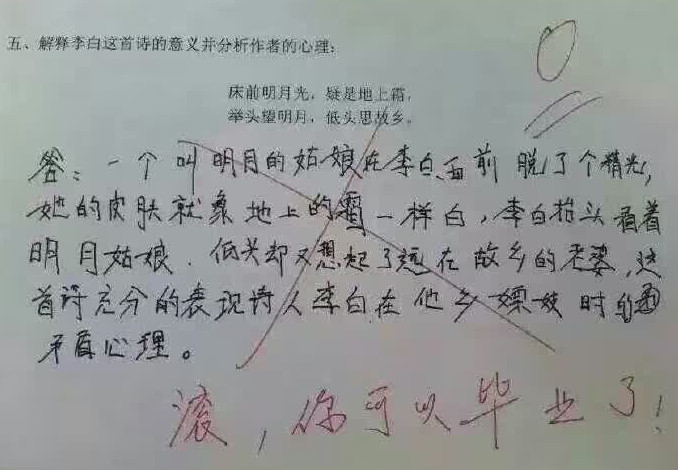 五、解释李白这首诗的意义并分析作者的心理：
0
床前明月光，疑是地上霜，
举头望明月，低头思故乡。
答：一个叫明月的姑娘在李白面前脱了个精光，
她的皮肤就象地上的霜一样白，李白抬头看着
明月姑娘．低头却又想起了远在故乡的老婆，这
首诗充分的表现诗人李白在他乡嫖妓时的
矛盾心理。
滚，你可以毕业了！